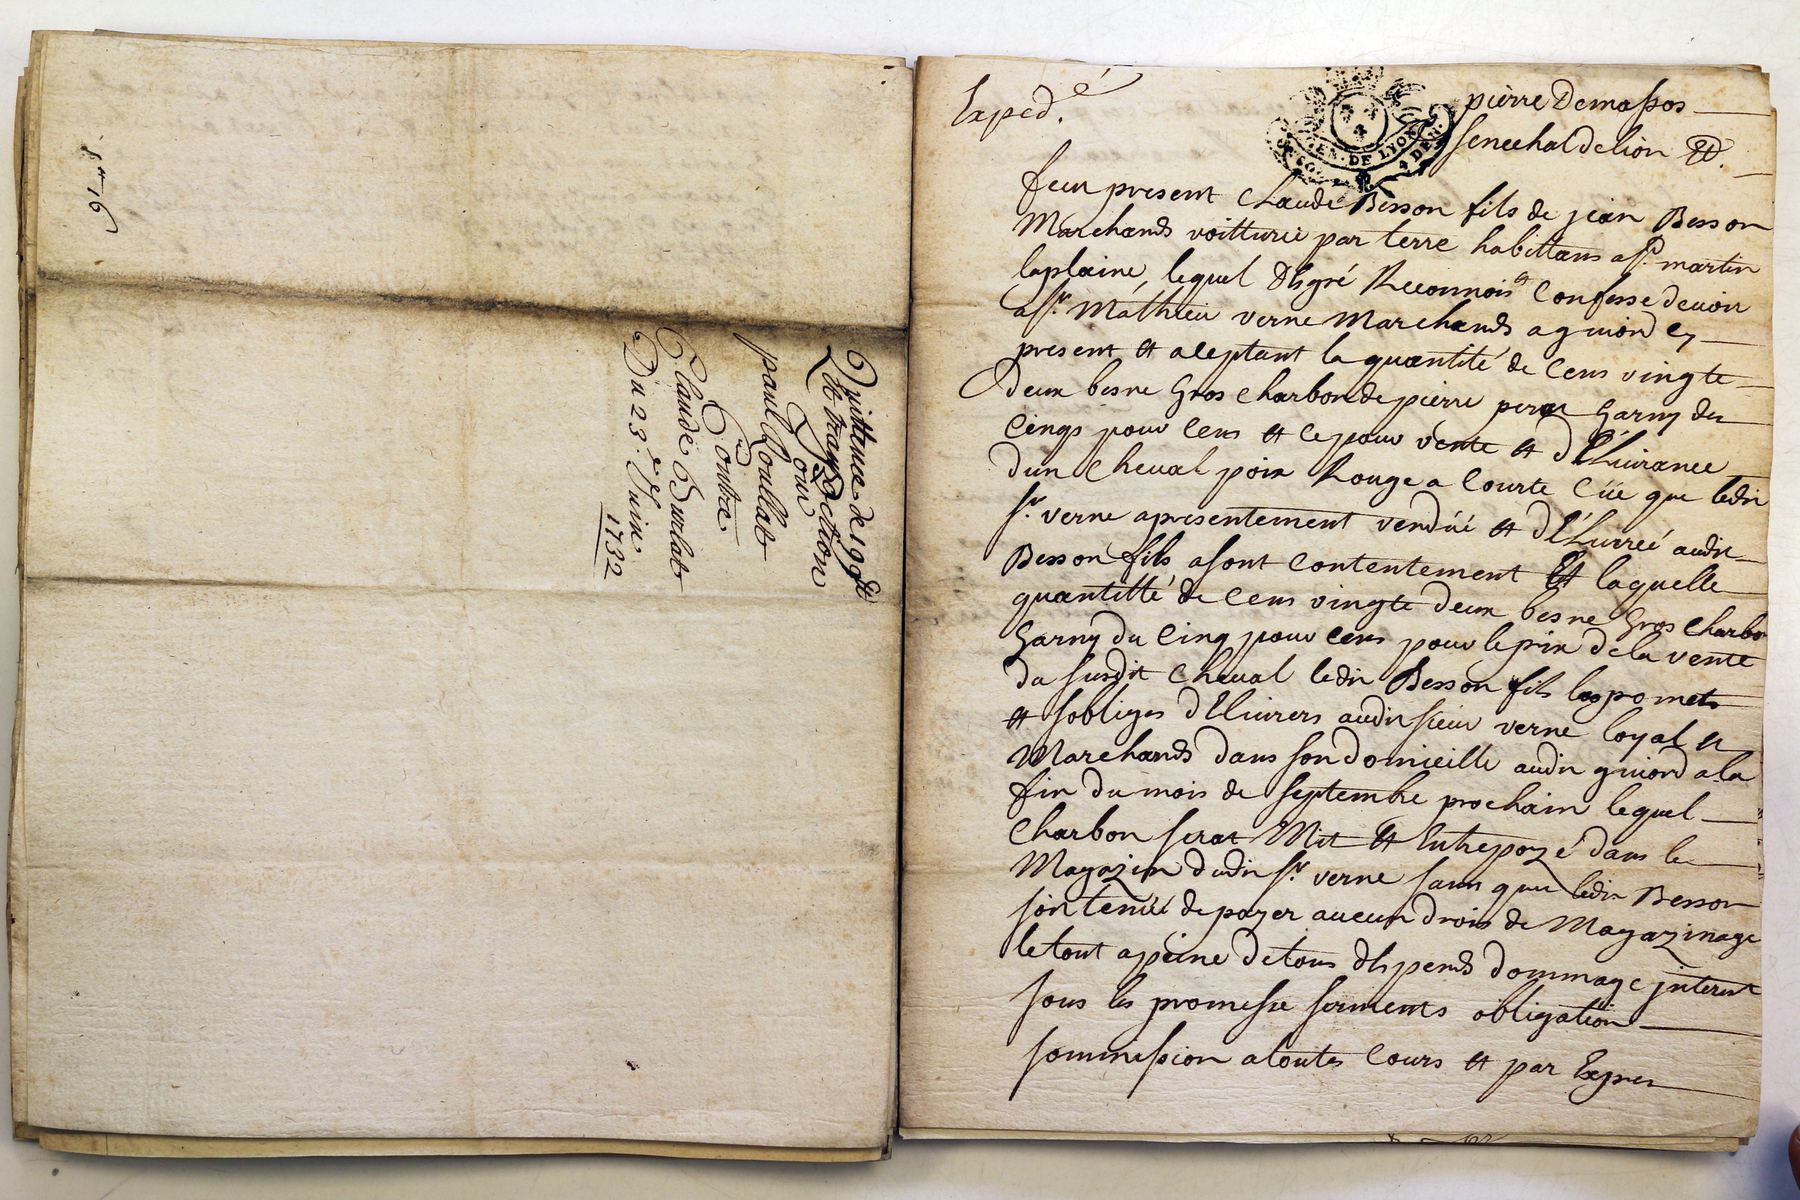 1tt 16
Quittence de 199tt
Et tranzaction
Pour
paul Roullat
Contre
Claude Burlat
Du 23.e Juin
1732
Exped.é
GEN. DE LYON
4 DEN.
pierre Demassos
senechal de lion &.
feu present Claude Besson fils de jean Besson
Marchands voitturie par terre habittans a st. martin
laplaine, lequel de gré Reconnois et Confesse devoir
a sr. Mathieu verne Marchands a givord
present et aceptant la quantité de Cens vingte
Deux besne Gros Charbon de pierre perat Garny des
Cinqs pour Cens et ce pour vente et dellivrance
dun Cheval poix Rouge a Courte Cüe que ledit
sr. verne a presentement vendué et dellivreé audit
Besson fils a sont Contentement Et laquelle
quantitté de Cens vingte deux besne Gros Charbo
Garny du Cinq pour Cens pour le prix de la vente
du susdit Cheval ledit Besson fils promet
et sobliges dellivrers audit sieur verne loyal et
Marchands dans son domicille audit givord a la
fin du mois de septembre prochain lequel
Charbon serat Mit et Entrepozé dans le
Magazin dudit sr. verne sans que ledit Besson
soit tenüé de payer aucun drois de Magazinage
le tout a peine de tous despends dommage jnterest
sous les promesse serments obligation
sommission a toutes Cours et par Expres